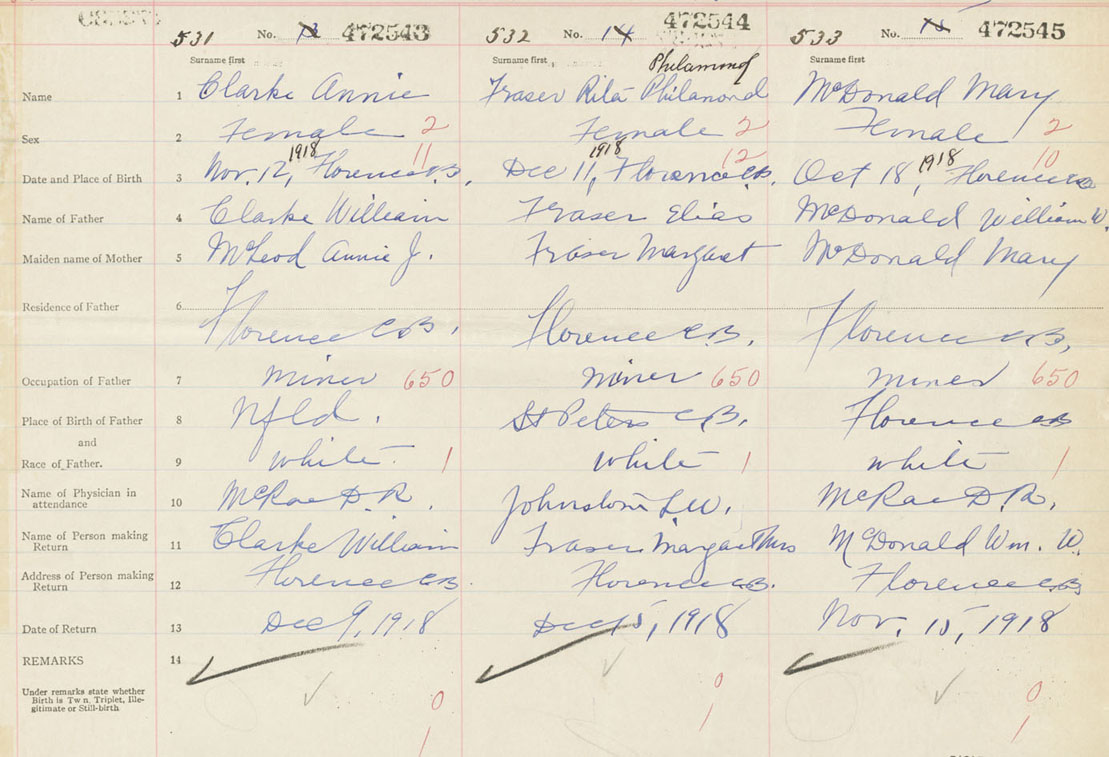 531 No. 13 472543 532 No. 14 472544 533 No. 15 472545
Surname first Surname first Surname first
Philamond
Name 1 Clarke Annie Fraser Rita Philamond McDonald Mary
Sex 2 Female 2 Female 2 Female 2
1918 11 1918 12 1918 10
Date and Place of Birth 3 Nov. 12, Florence C.B. Dec 11, Florence C.B. Oct 18, Florence C.B
Name of Father 4 Clarke William Fraser Elias McDonald William W.
Maiden name of Mother 5 McLeod Annie J. Fraser Margaet McDonald Mary
Residence of Father 6
Florence C.B. Florence C.B. Florence C.B.
Occupation of Father 7 Miner 650 Miner 650 Miner 650
Place of Birth of Father 8 Nfld. St Peters C.B. Florence CB
and
Race of Father. 9 White 1 White 1 White 1
Name of Physician in
attendance 10 McRae D. R. Johnston L W. McRae D. R.
Name of Person making
Return 11 Clarke William Fraser Margaet Mrs McDonald Wm. W.
Address of Person making
Return 12 Florence CB Florence C.B. Florence C.B
Date of Return 13 Dec 9, 1918 Dec 15, 1918 Nov. 15, 1918
REMARKS 14
Under remarks state whether
Birth is Twn, Triplet, Ille-
gitimate or Still-birth
0 0 0
1 1 1